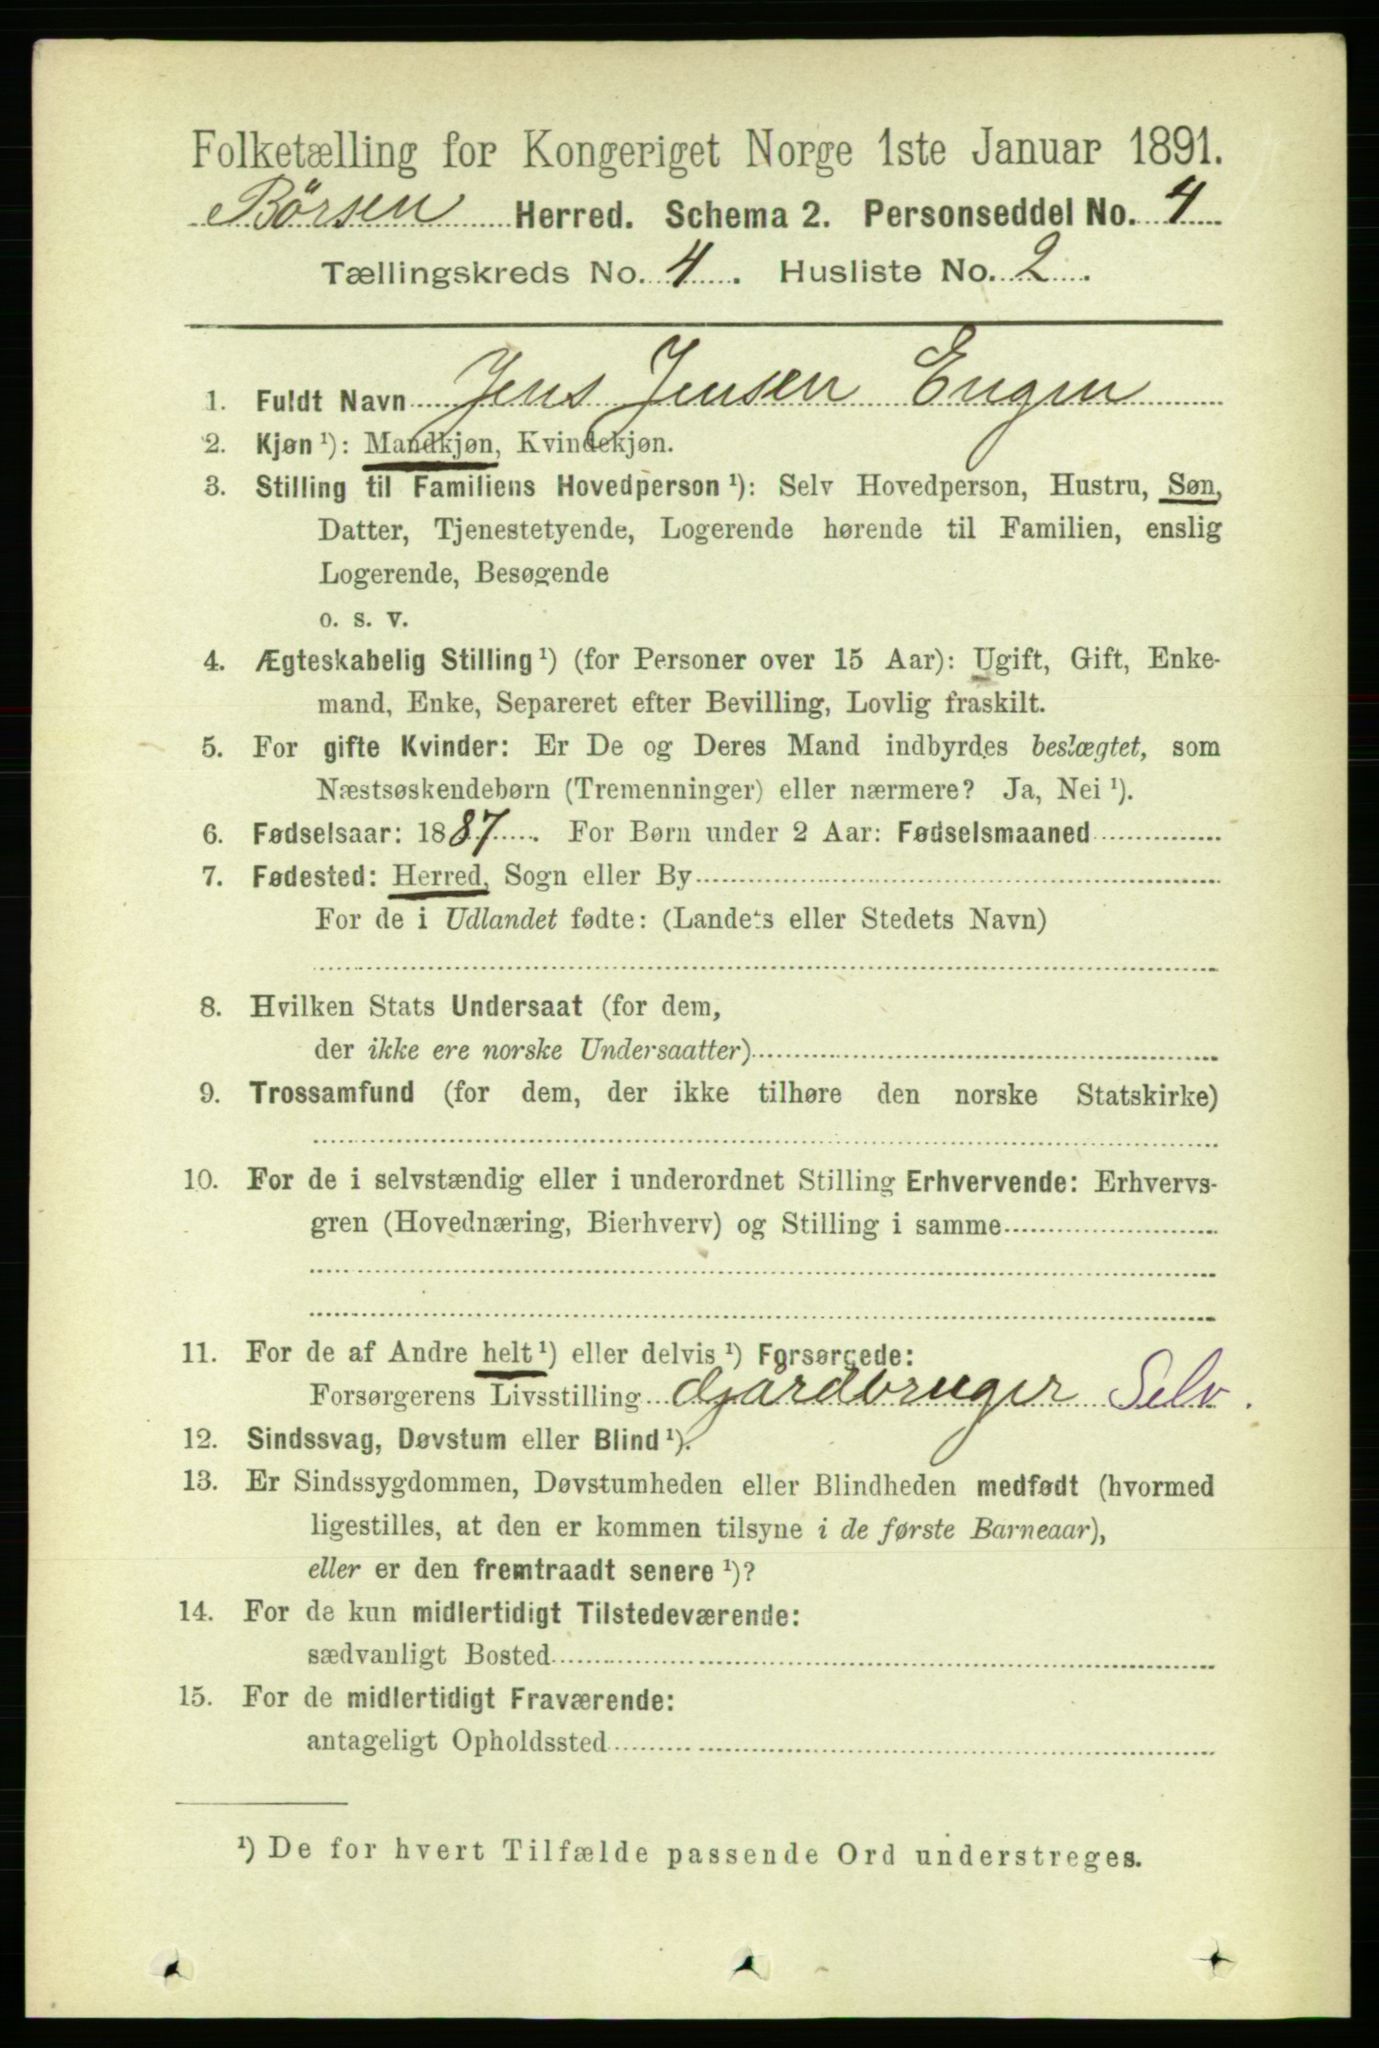 Folketælling for Kongeriget Norge 1ste Januar 1891.
Börsen Herred. Schema 2. Personseddel No. 4
Tællingskreds No. 4. Husliste No. 2.
1. Fuldt Navn Jens Jensen Engen
2. Kjøn ¹): Mandkjøn, Kvindekjøn.
3. Stilling til Familiens Hovedperson ¹): Selv Hovedperson, Hustru, Søn,
Datter, Tjenestetyende, Logerende hørende til Familien, enslig
Logerende, Besøgende
o. s. v.
4. Ægteskabelig Stilling ¹) (for Personer over 15 Aar): Ugift, Gift, Enke-
mand, Enke, Separeret efter Bevilling, Lovlig fraskilt.
5. For gifte Kvinder: Er De og Deres Mand indbyrdes beslægtet, som
Næstsøskendebørn (Tremenninger) eller nærmere? Ja, Nei ¹).
6. Fødselsaar: 1887. For Børn under 2 Aar: Fødselsmaaned
7. Fødested: Herred, Sogn eller By
For de i Udlandet fødte: (Landets eller Stedets Navn)
8. Hvilken Stats Undersaat (for dem,
der ikke ere norske Undersaatter)
9. Trossamfund (for dem, der ikke tilhøre den norske Statskirke)
10. For de i selvstændig eller i underordnet Stilling Erhvervende: Erhvervs-
gren (Hovednæring, Bierhverv) og Stilling i samme
11. For de af Andre helt ¹) eller delvis ¹) Forsørgede:
Forsørgerens Livsstilling Gårdbruger Selv.
12. Sindssvag, Døvstum eller Blind ¹).
13. Er Sindssygdommen, Døvstumheden eller Blindheden medfødt (hvormed
ligestilles, at den er kommen tilsyne i de første Barneaar),
eller er den fremtraadt senere ¹)?
14. For de kun midlertidigt Tilstedeværende:
sædvanligt Bosted
15. For de midlertidigt Fraværende:
antageligt Opholdssted
¹) De for hvert Tilfælde passende Ord understreges.